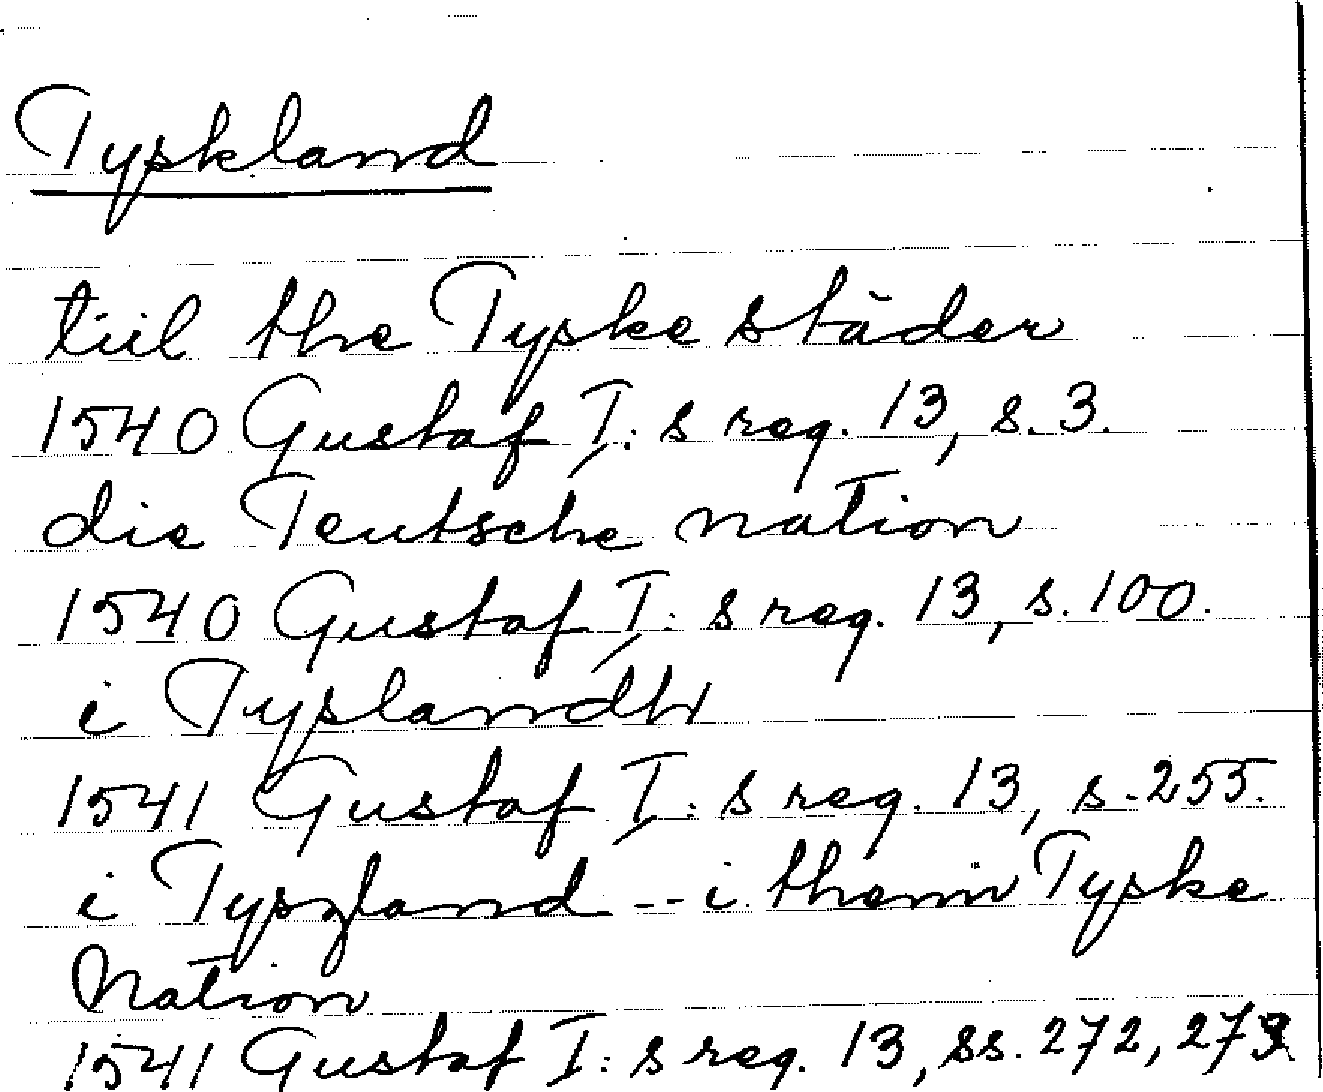 Tyskland
tiil the Tyske städer
1540 Gustaf I: s reg. 13, s. 3.
die Teutsche nation
1540 Gustaf I: s reg. 13, s. 100.
i Tyslandh
1541 Gustaf I: s reg. 13, s. 255.
i Tyszland -- i them Tyske
Nation
1541 Gustaf I: s reg. 13, ss. 272, 273